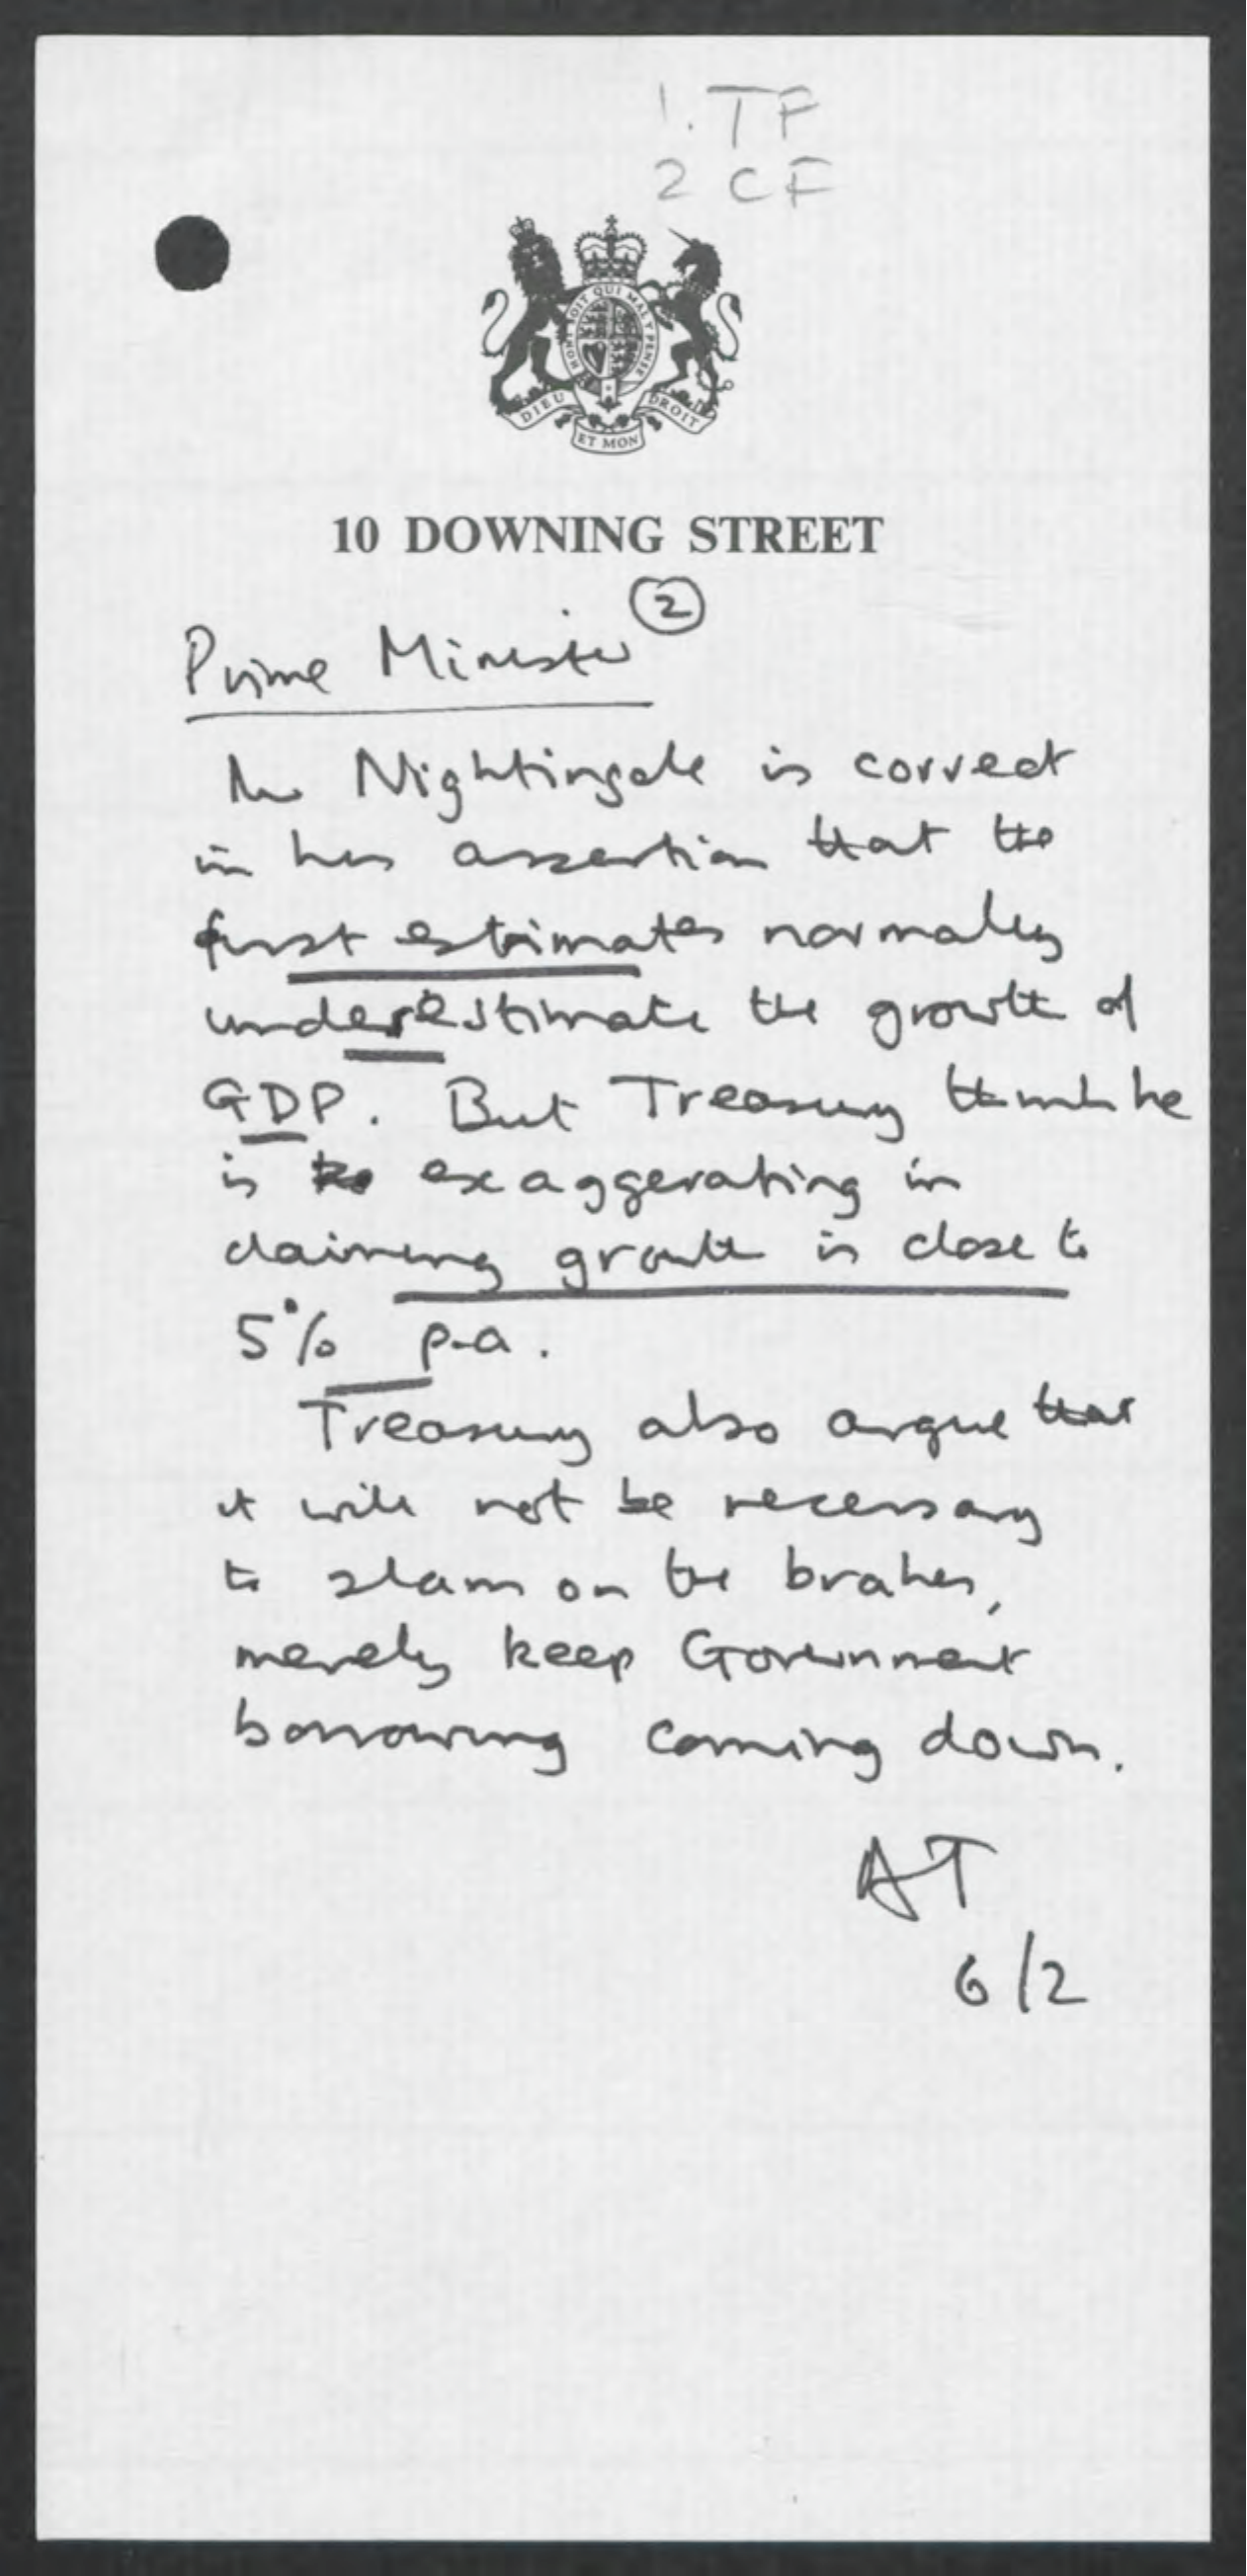 1. TF
2 CF
HONI SOIT QUI MAL Y PENSE
DIEU ET MON DROIT
10 DOWNING STREET
2
Prime Minister
Mr Nightingale is correct
in his assertion that the
first estimates normally
underestimate the growth of
GDP. But Treasury think he
is exaggerating in
claiming growth is close to
5% p.a.
Treasury also argue that
it will not be necessary
to slam on the brakes,
merely keep Government
borrowing coming down.
AT
6/2